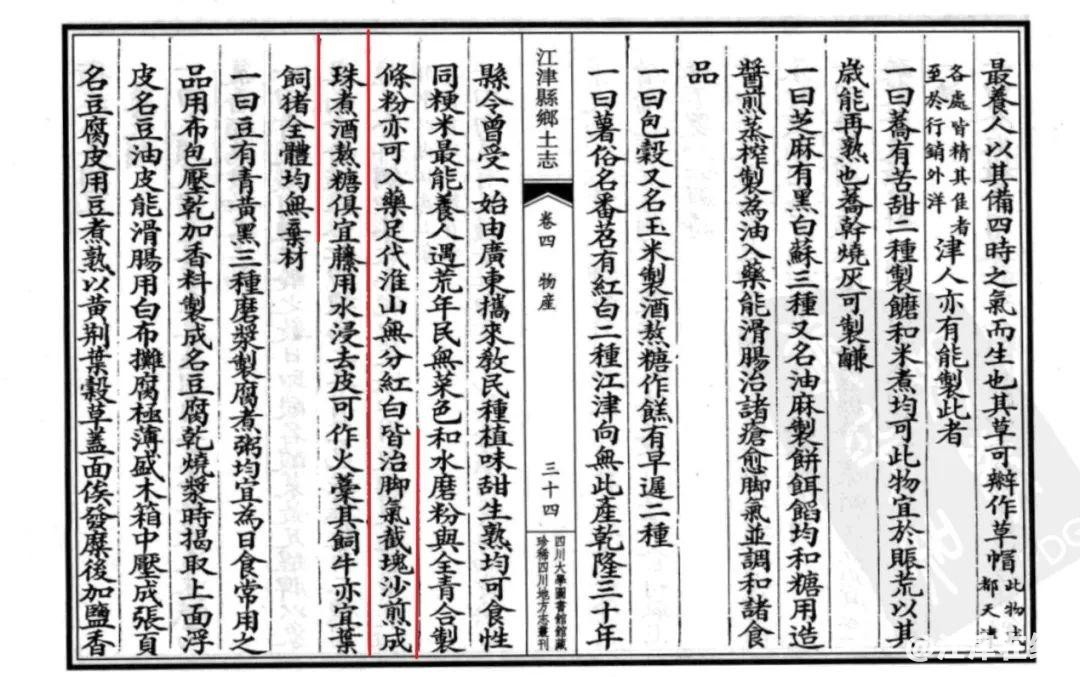 最養人以其備四時之氣而生也其草可辮作草帽此物
都天
各處皆精其佳者
至於行銷外洋
津人亦有能製此者
一曰蕎有苦甜二種製麵和米煮均可此物宜於賑荒以其
歲能再熟也蕎幹燒灰可製鹻
一曰芝麻有黑白蘇三種又名油麻製餅餌餡均和糖用造
醬煎蒸榨製為油入藥能滑腸治諸瘡愈脚氣並調和諸食
品
一曰包穀又名玉米製酒熬糖作餻有早遲二種
一曰薯俗名番苕有紅白二種江津向無此產乾隆三十年
江津縣鄉土志
卷四 物産
三十四
四川大學圖書館館藏
珍稀四川地方志叢刊
縣令曾受一始由廣東攜來教民種植味甜生熟均可食性
同粳米最能養人遇荒年民無菜色和水磨粉與全青合製
條粉亦可入藥足代淮山無分紅白皆治脚氣截塊沙煎成
珠煮酒熬糖俱宜藤用水浸去皮可作火藁其飼牛亦宜葉
飼猪全體均無棄材
一曰豆有青黃黑三種磨漿製腐煮粥均宜為日食常用之
品用布包壓乾加香料製成名豆腐乾燒漿時揭取上面浮
皮名豆油皮能滑腸用白布攤腐極薄盛木箱中壓成張頁
名豆腐皮用豆煮熟以黃荆葉穀草蓋面俟發糜後加鹽香